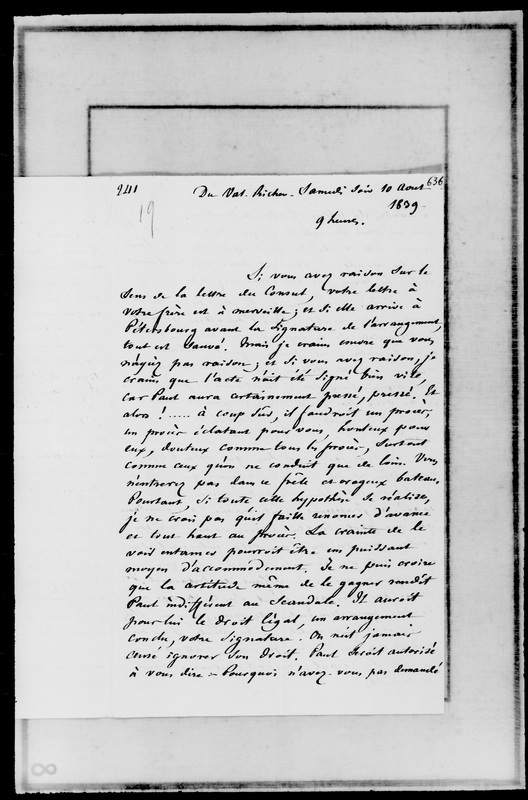 241
19
636
Du Val-Richer - Samedi soir 10 Aout
1839.
9 heures.
Si vous avez raison sur le
sens de la lettre du Consul, votre lettre à
votre frère est à merveille; et si elle arrive à
Pétersbourg avant la signature de l'arrangement,
tout est sauvé. Mais je crains encore que vous
n'ayiez pas raison; et si vous avez raison, je
crains que l'acte n'ait été signé bien vite,
car Paul aura certainement pressé, pressé. Et
alors! ..... à coup sûr, il faudroit un procès,
un procès éclatant pour vous, honteux pour
eux, douteux comme tous les procès, surtout
comme ceux qu'on ne conduit que de loin. Vous
n'entrerez pas dans ce frêle et orageux bateau.
Pourtant, si toute cette hypothèse se réalise,
je ne crois pas qu'il faille renoncer d'avance
et tout haut au procès. La crainte de le
voir entamer pourroit être un puissant
moyen d'accommodement. Je ne puis croire
que la certitude même de le gagner rendît
Paul indifférent au scandale. Il auroit
pour lui le droit légal, un arrangement
conclu, votre signature. On n'est jamais
censé ignorer son droit. Paul seroit autorisé
à vous dire: - Pourquoi n'avez-vous pas demandé